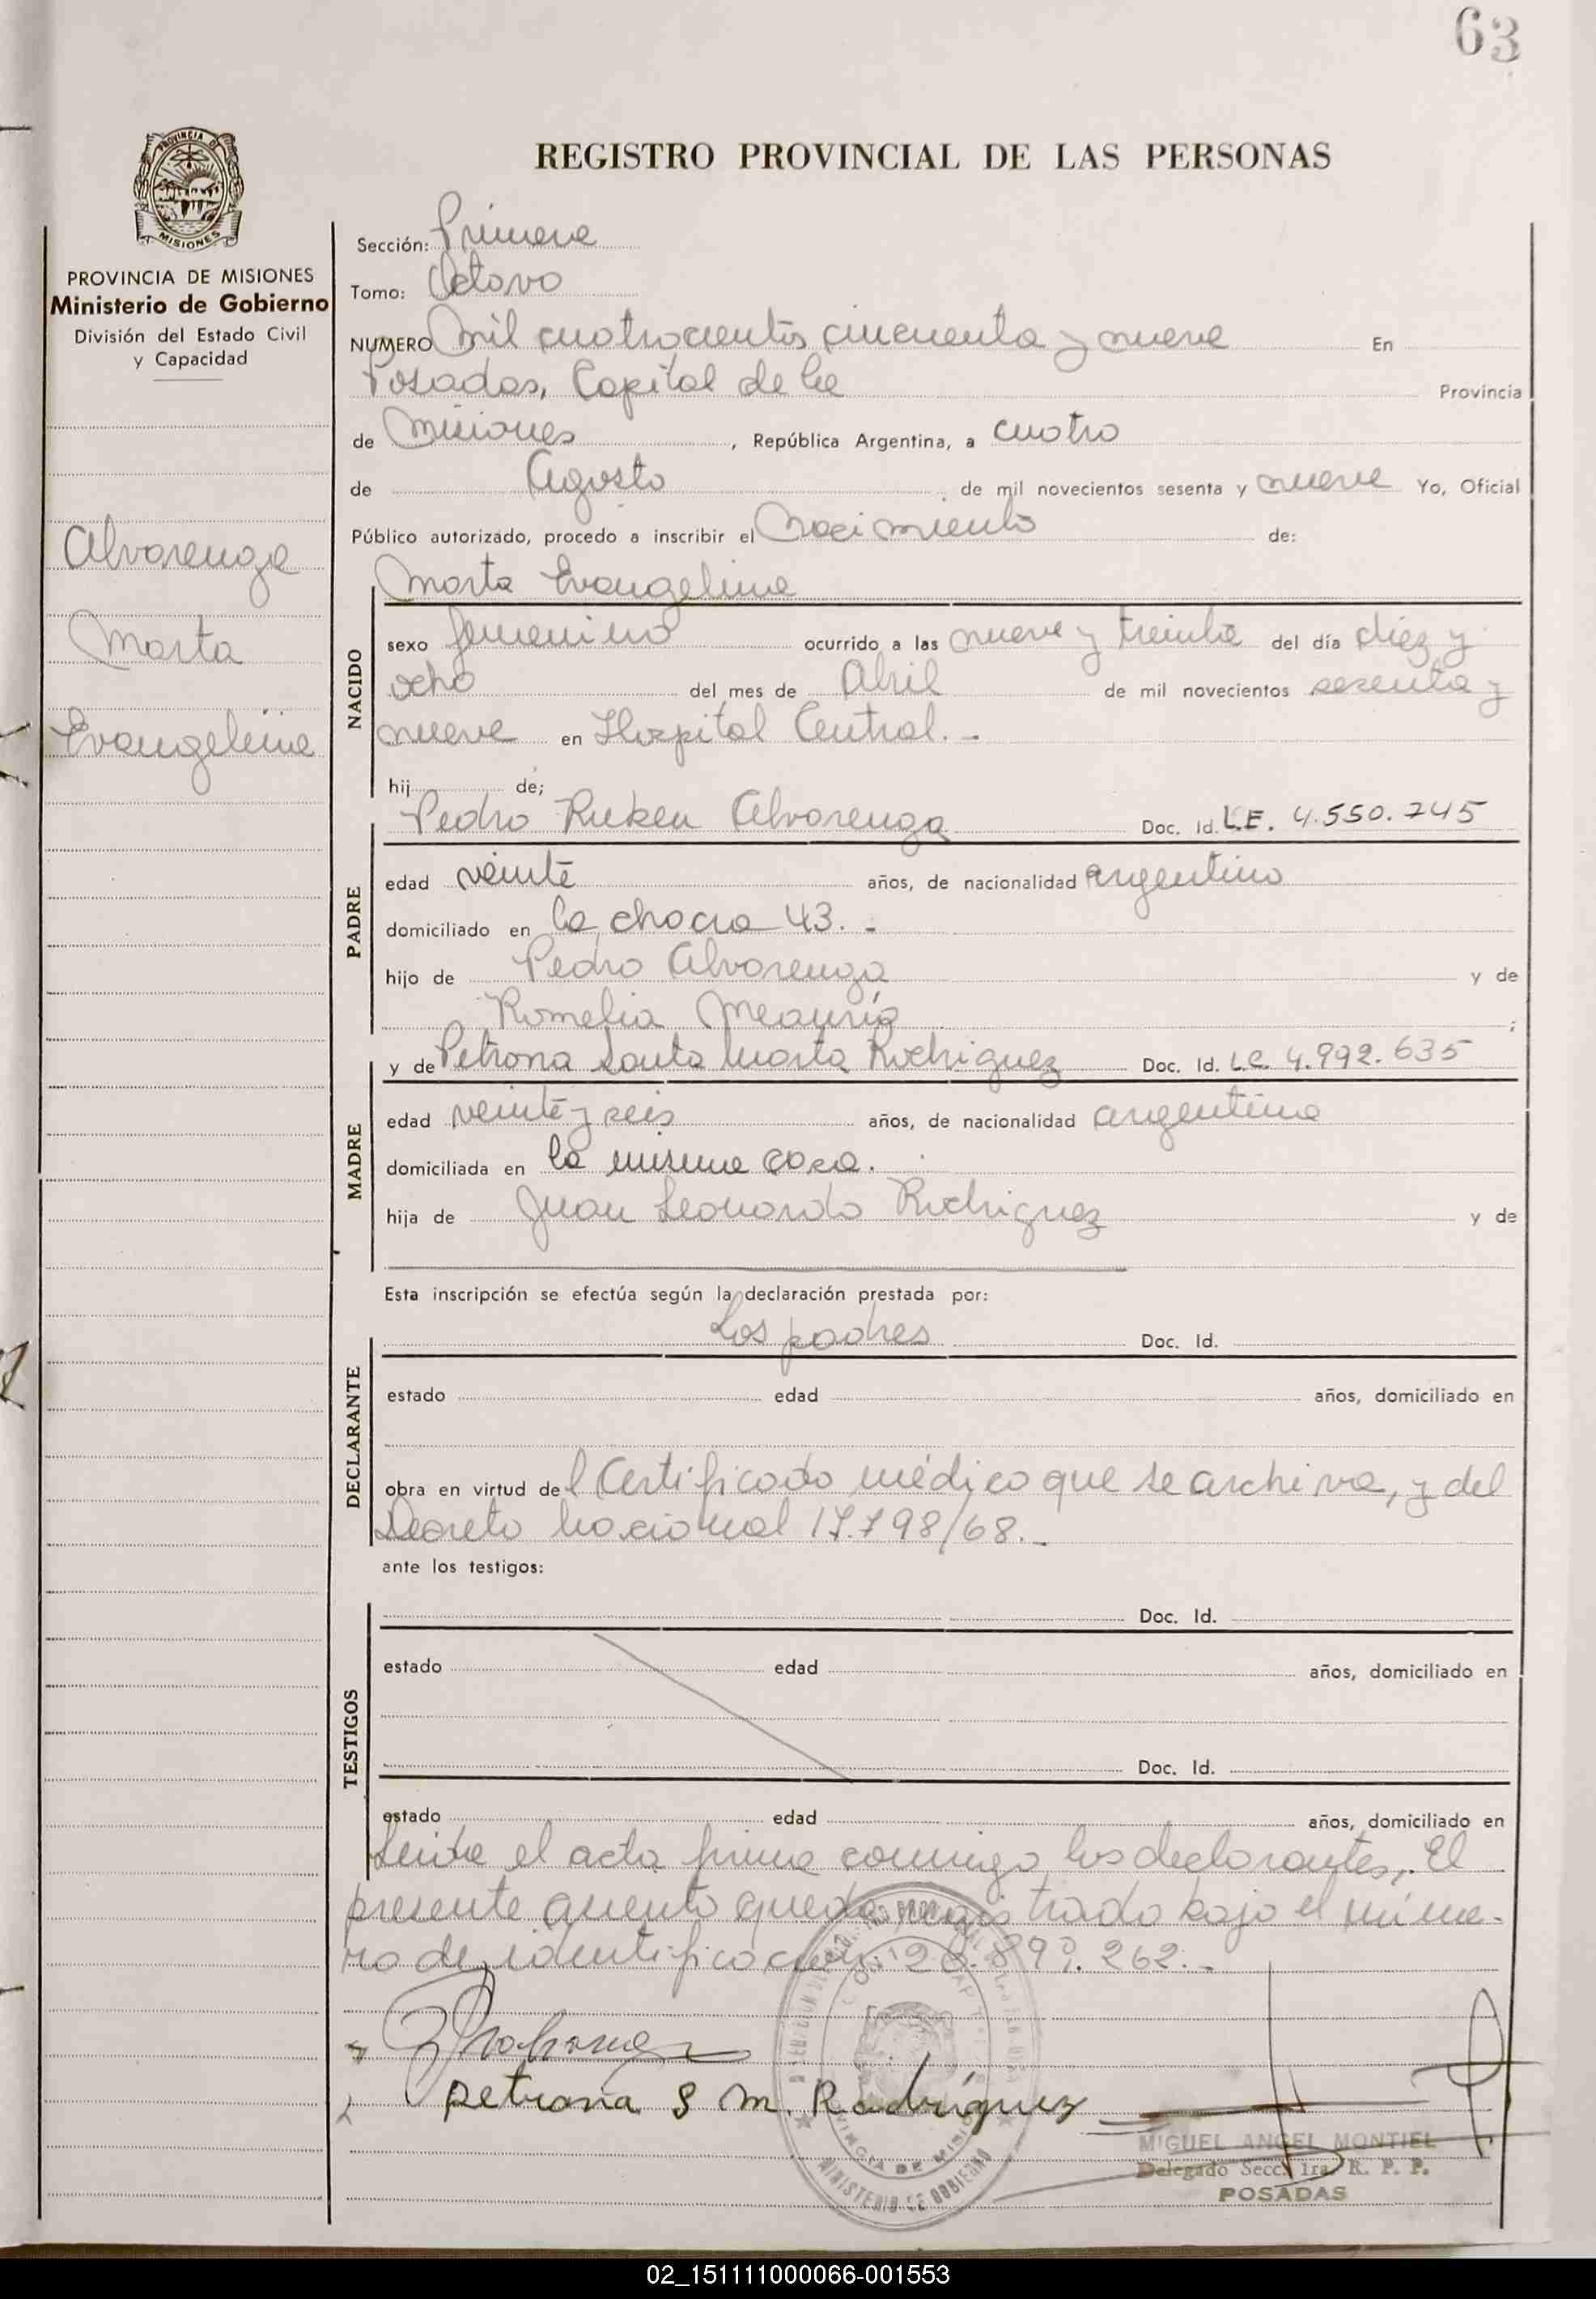 63
REGISTRO PROVINCIAL DE LAS PERSONAS
PROVINCIA DE MISIONES
Ministerio de Gobierno
División del Estado Civil
y Capacidad
Alvarenga
Marta
Evangelina
Sección: Primera
Tomo: Octavo
NUMERO mil cuatrocientos cincuenta y nueve En
Posadas, Capital de la Provincia
de Misiones, República Argentina, a cuatro
de Agosto de mil novecientos sesenta y nueve Yo, Oficial
Público autorizado, procedo a inscribir el Nacimiento de:
Marta Evangelina
NACIDO
sexo femenino ocurrido a las nueve y treinta del día diez y
ocho del mes de Abril de mil novecientos sesenta y
nueve en Hospital Central.-
hij de;
Pedro Ruben Alvarenga Doc. Id. L.E. 4.550.745
PADRE
edad veinte años, de nacionalidad argentino
domiciliado en la chacra 43.-
hijo de Pedro Alvarenga y de
Romelia ;
y de Petrona Santa Marta Rodriguez Doc. Id. L.C. 4.992.635
MADRE
edad veinte y seis años, de nacionalidad argentina
domiciliada en la misma casa.
hija de Juan Leonardo Rodriguez y de
Esta inscripción se efectúa según la declaración prestada por:
Los padres Doc. Id.
DECLARANTE
estado edad años, domiciliado en
obra en virtud del Certificado médico que se archiva, y del
Decreto Nacional 17.798/68.-
ante los testigos:
Doc. Id.
TESTIGOS
estado edad años, domiciliado en
Doc. Id.
estado edad años, domiciliado en
Leida el acta firma conmigo los declarantes. El
presente queda registrado bajo el núme-
ro de identificacion: 262.-
Petrona S M. Rodríguez
MIGUEL ANGEL MONTIEL
Delegado Secc. 1ra. R. P. P.
POSADAS
MINISTERIO DE GOBIERNO
02_151111000066-001553